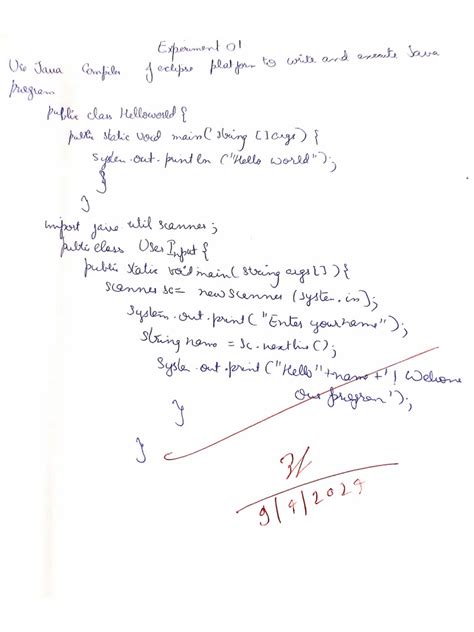 Experiment 01
Use Java Compiler of eclipse platform to write and execute Java
program
public class Helloworld {
public static void main(string [] args) {
System.out.println ("Hello world");
}
}
import java util scanner;
public class User Input {
public static void main(string args[]) {
scanner sc = new scanner (system.in];
System.out.print ("Enter your name");
string name = sc.nextline();
System.out.print ("Hello"+name+'! Welcome
our program');
}
}
9/4/2024